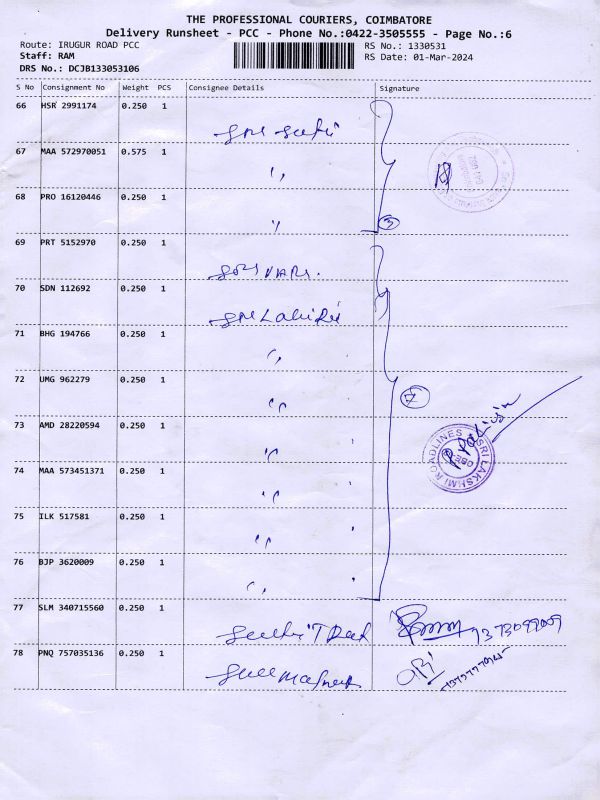 THE PROFESSIONAL COURIERS, COIMBATORE
Delivery Runsheet - PCC - Phone No.:0422-3505555 - Page No.:6
Route: IRUGUR ROAD PCC RS No.: 1330531
Staff: RAM RS Date: 01-Mar-2024
DRS No.: DCJB133053106
S No Consignment No Weight PCS Consignee Details Signature
66 HSR 2991174 0.250 1
67 MAA 572970051 0.575 1
68 PRO 16120446 0.250 1
3
69 PRT 5152970 0.250 1
70 SDN 112692 0.250 1
71 BHG 194766 0.250 1
72 UMG 962279 0.250 1
7
73 AMD 28220594 0.250 1
SRI LAKSHMI ROADLINES
74 MAA 573451371 0.250 1
75 ILK 517581 0.250 1
76 BJP 3620009 0.250 1
77 SLM 340715560 0.250 1
78 PNQ 757035136 0.250 1